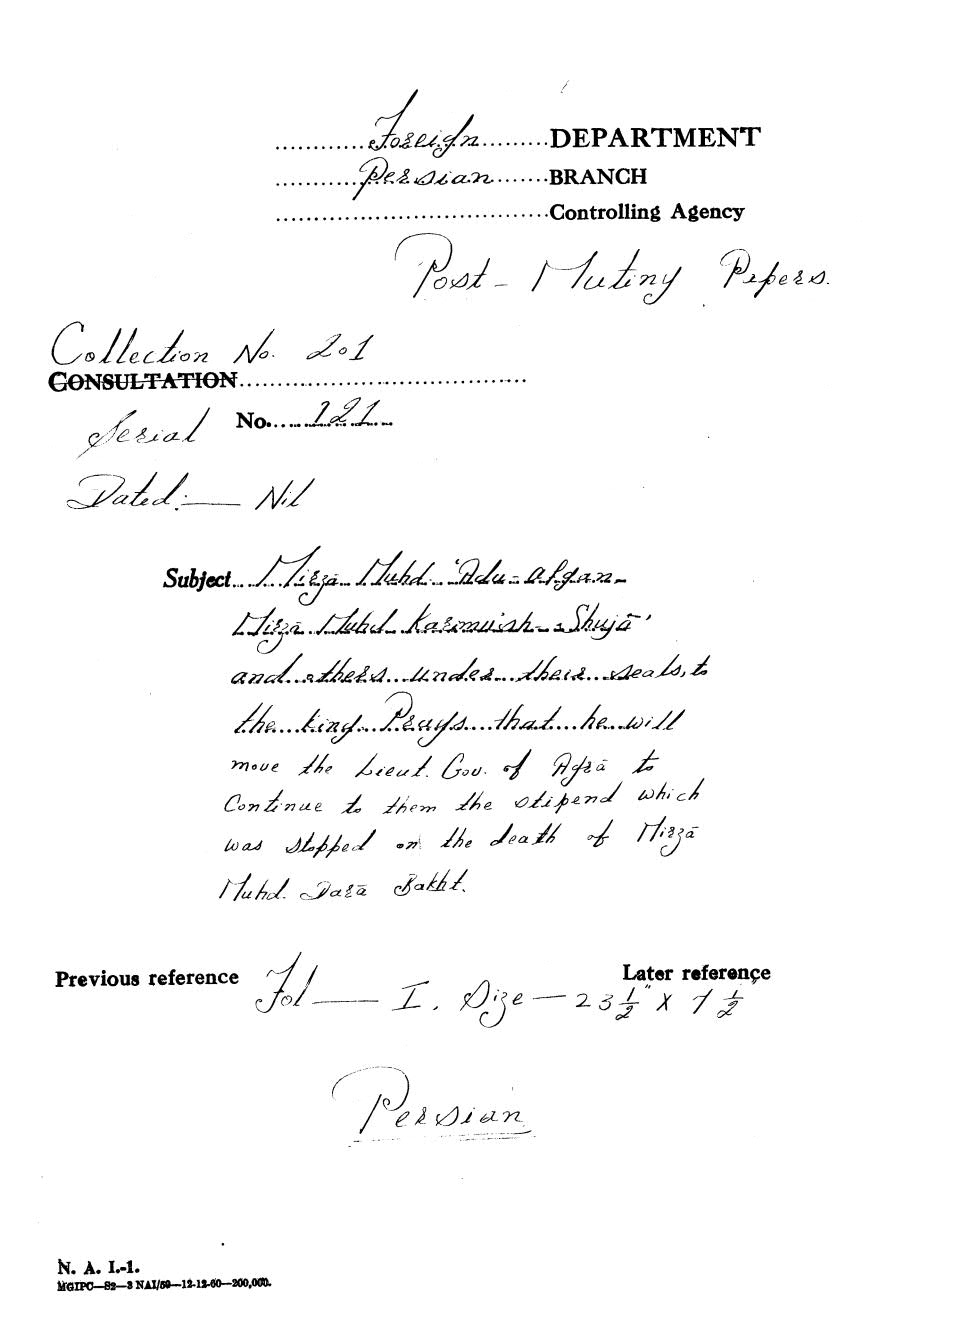 ............Foreign.........DEPARTMENT
...........Persian.......BRANCH
....................................Controlling Agency
Post - Mutiny Papers.
Collection No. 201
CONSULTATION......................................
Serial No....121...
Dated:— Nil
Subject...Mirzā Muhd 'Adu-afgan
Mirzā Muhd Karimuish-Shujā'
and others under their seals, to
the king Prays that he will
move the Lieut. Gov. of Agrā to
Continue to them the stipend which
was stopped on the death of Mirzā
Muhd. Darā Bakht.
Previous reference Later reference
Fol — I. Size — 23 1/2" X 7 1/2
Persian
N. A. I.-1.
MGIPC—S2—3 NAI/59—12-12-60—200,000.